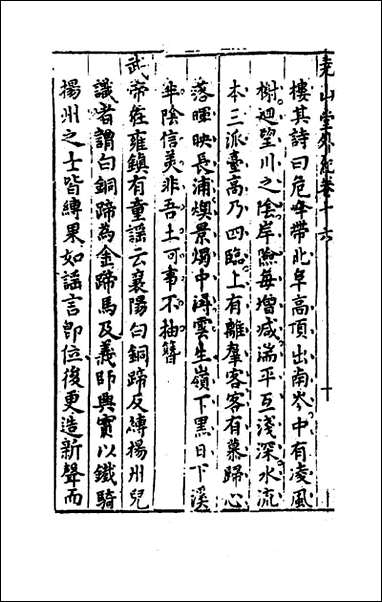 堯山堂外紀卷十六
十
樓其詩曰危峰帶北阜高頂出南岑中有凌風
榭迴望川之陰岸險每增減湍平互淺深水流
本三派臺高乃四臨上有離羣客客有慕歸心
落暉映長浦煥景燭中潯雲生嶺下黑日下溪
半陰信美非吾土可事不抽簪
武帝在雍鎮有童謠云襄陽白銅蹄反縛揚州兒
識者謂白銅蹄為金蹄馬及義師興實以鐵騎
揚州之士皆縛果如謡言卽位後更造新聲而